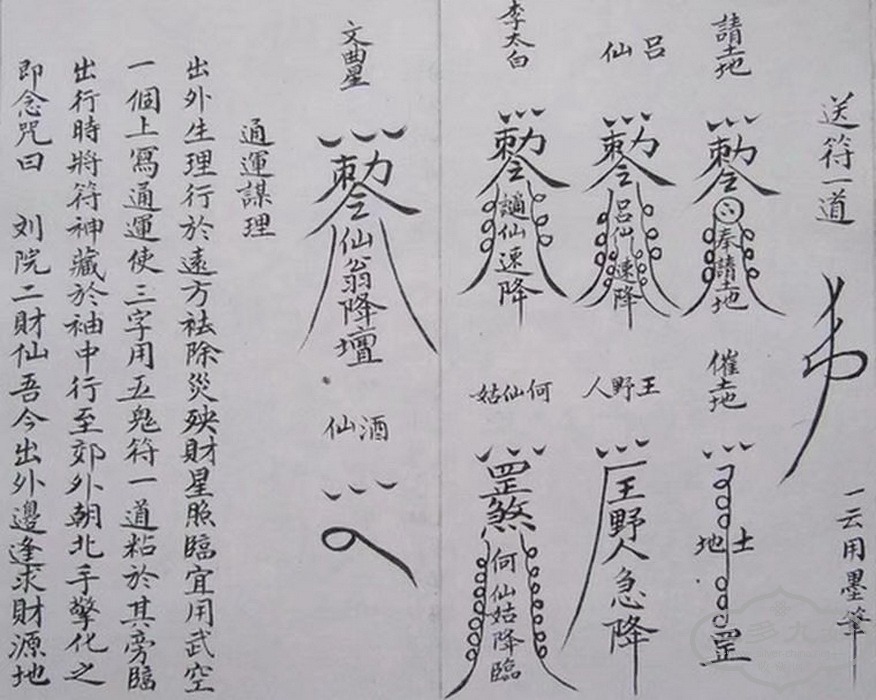 送符一道
一云用墨筆
請土地
勅令奉請土地
催土地
土地
罡
呂仙
勅令呂仙速降
王野人
王野人急降
李太白
勅令謫仙速降
何仙姑
罡煞何仙姑降臨
文曲星
勅令仙翁降壇
酒仙
通運謀理
出外生理行於遠方祛除災殃財星照臨宜用武空
一個上寫通運使三字用五鬼符一道粘於其旁臨
出行時將符神藏於袖中行至郊外朝北手擎化之
即念咒曰 刘院二財仙吾今出外邊逢求財源地